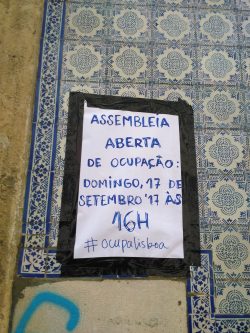 ASSEMBLEIA
ABERTA
DE OCUPAÇÃO:
DOMINGO, 17 DE
SETEMBRO '17 ÀS
16H
#ocupalisboa